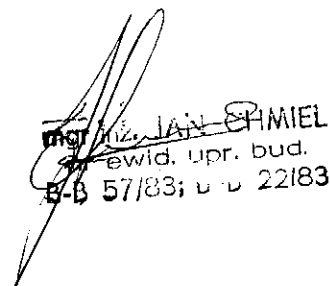 mgr inż. JAN CHMIEL
nr ewid. upr. bud.
B-B 57/83; B-B 22/83